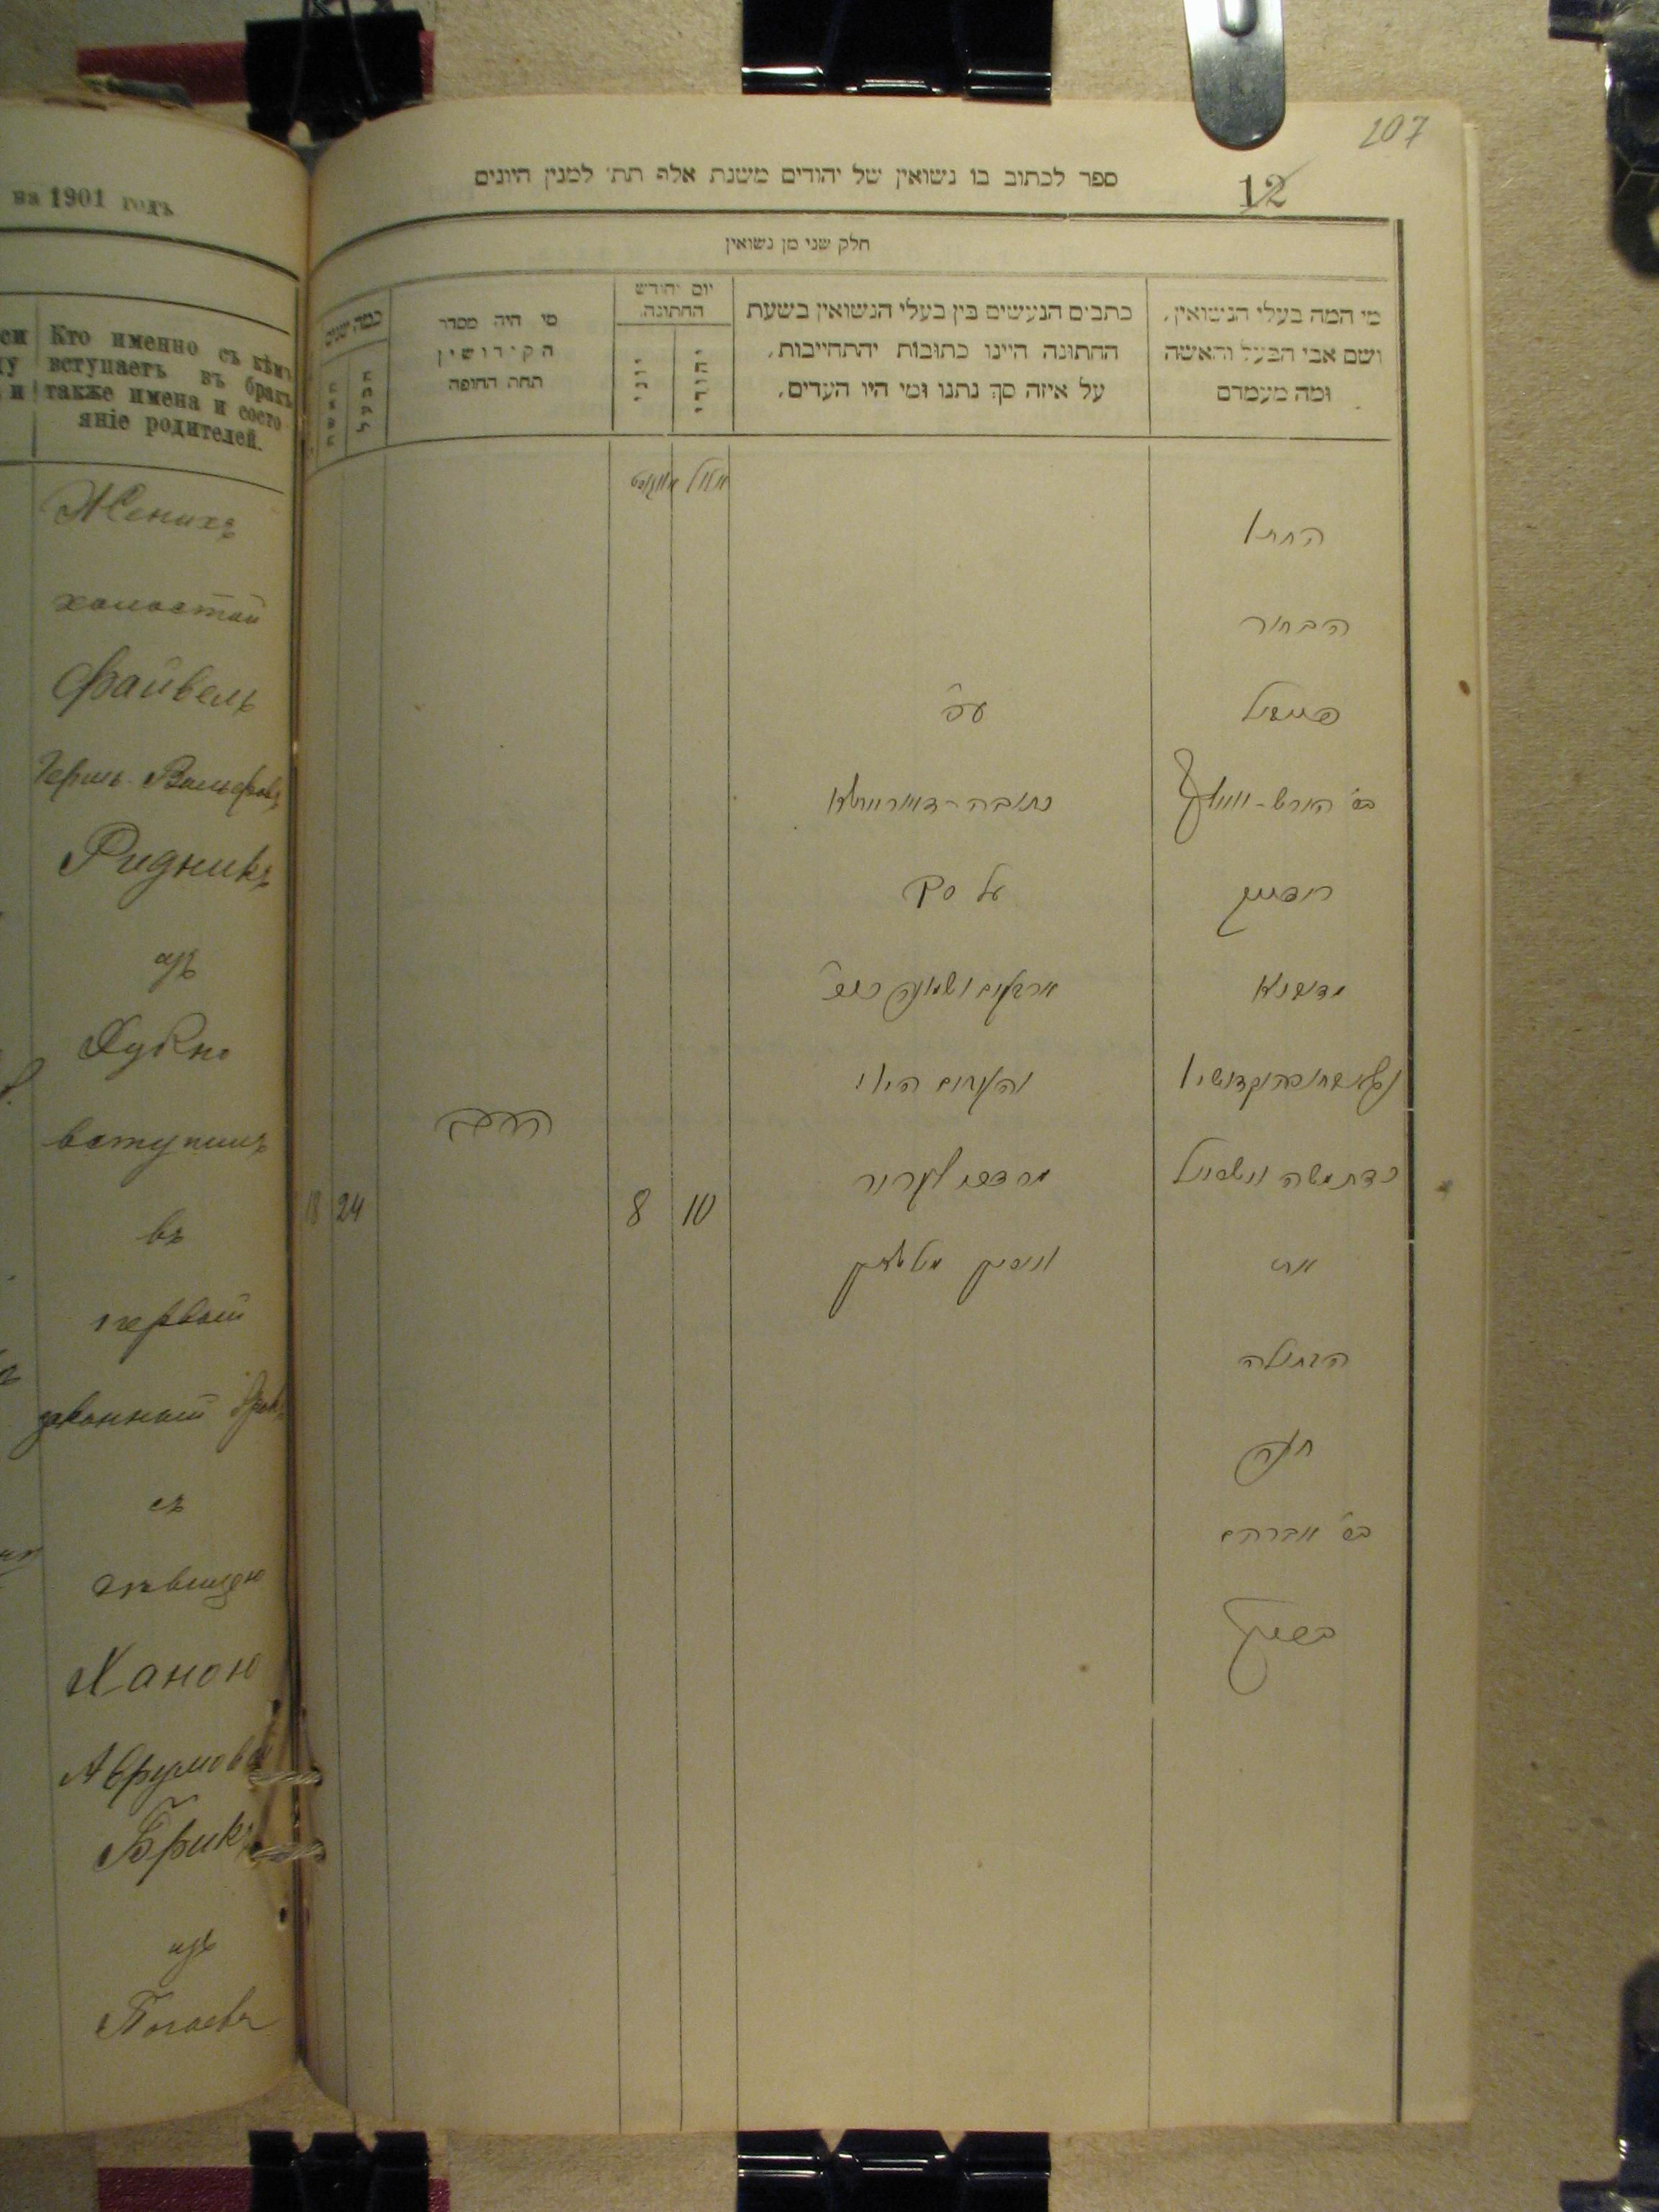 на 1901 годъ
Кто именно съ кѣмъ
вступаетъ въ бракъ
также имена и состо
яніе родителей.
Женихъ
холостой
Файвель
Гершъ-Вольфовъ
Ридникъ
изъ
вступилъ
въ
первый
законный бракъ
съ
дѣвицею
Ханою
Аврумовъ
Брикъ
изъ
107
ספר לכתוב בו נשואין של יהודים משנת אלף תת׳ למנין היונים
12
חלק שני מן נשואין
מי המה בעלי הנישואין,
ושם אבי הבעל והאשה
ומה מעמדם
כתבים הנעשים בין בעלי הנשואין בשעת
החתונה היינו כתובות יהתחייבות,
על איזה סך נתנו ומי היו העדים,
יום יחודש
החתונה
יהודי
יוני
מי היה מסדר
הקידושין
תחת החופה
כמה שנים
הבעל
האשה
אלול
אוגוסט
החתן
הבחור
פייוויל
בר׳ הערש-וואלף
רידניק
את
הבתולה
חנה
בר׳ אברהם
בריק
כתובה
על סך
ארבעים ושמונה
והעדים היו
הרב
10
8
24
18